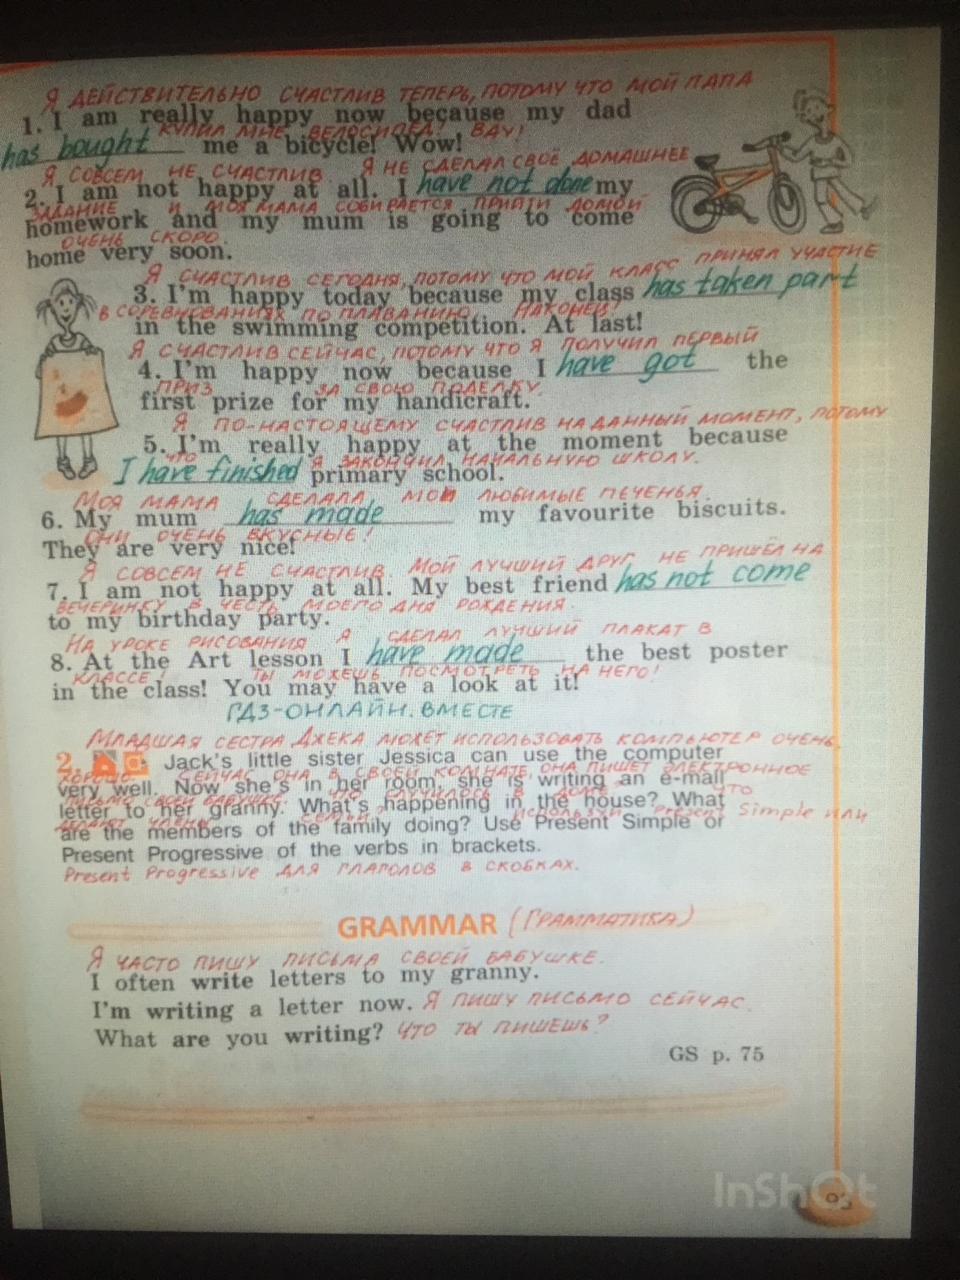 Я ДЕЙСТВИТЕЛЬНО СЧАСТЛИВ ТЕПЕРЬ, ПОТОМУ ЧТО МОЙ ПАПА
1. I am really happy now because my dad
КУПИЛ МНЕ ВЕЛОСИПЕД! ВАУ!
has bought me a bicycle! Wow!
Я СОВСЕМ НЕ СЧАСТЛИВ Я НЕ СДЕЛАЛ СВОЁ ДОМАШНЕЕ
2. I am not happy at all. I have not done my
ЗАДАНИЕ И МОЯ МАМА СОБИРАЕТСЯ ПРИЙТИ ДОМОЙ
homework and my mum is going to come
ОЧЕНЬ СКОРО.
home very soon.
Я СЧАСТЛИВ СЕГОДНЯ, ПОТОМУ ЧТО МОЙ КЛАСС ПРИНЯЛ УЧАСТИЕ
3. I'm happy today because my class has taken part
В СОРЕВНОВАНИЯХ ПО ПЛАВАНИЮ. НАКОНЕЦ!
in the swimming competition. At last!
Я СЧАСТЛИВ СЕЙЧАС, ПОТОМУ ЧТО Я ПОЛУЧИЛ ПЕРВЫЙ
4. I'm happy now because I have got the
ПРИЗ ЗА СВОЮ ПОДЕЛКУ.
first prize for my handicraft.
Я ПО-НАСТОЯЩЕМУ СЧАСТЛИВ НА ДАННЫЙ МОМЕНТ, ПОТОМУ
5. I'm really happy at the moment because
ЧТО Я ЗАКОНЧИЛ НАЧАЛЬНУЮ ШКОЛУ.
I have finished primary school.
МОЯ МАМА СДЕЛАЛА МОИ ЛЮБИМЫЕ ПЕЧЕНЬЯ.
6. My mum has made my favourite biscuits.
ОНИ ОЧЕНЬ ВКУСНЫЕ!
They are very nice!
Я СОВСЕМ НЕ СЧАСТЛИВ. МОЙ ЛУЧШИЙ ДРУГ НЕ ПРИШЁЛ НА
7. I am not happy at all. My best friend has not come
ВЕЧЕРИНКУ В ЧЕСТЬ МОЕГО ДНЯ РОЖДЕНИЯ.
to my birthday party.
НА УРОКЕ РИСОВАНИЯ Я СДЕЛАЛ ЛУЧШИЙ ПЛАКАТ В
8. At the Art lesson I have made the best poster
КЛАССЕ! ТЫ МОЖЕШЬ ПОСМОТРЕТЬ НА НЕГО!
in the class! You may have a look at it!
ГДЗ-ОНЛАЙН. ВМЕСТЕ
МЛАДШАЯ СЕСТРА ДЖЕКА МОЖЕТ ИСПОЛЬЗОВАТЬ КОМПЬЮТЕР ОЧЕНЬ
2. Jack's little sister Jessica can use the computer
ХОРОШО. СЕЙЧАС ОНА В СВОЕЙ КОМНАТЕ, ОНА ПИШЕТ ЭЛЕКТРОННОЕ
very well. Now she's in her room, she is writing an e-mail
ПИСЬМО СВОЕЙ БАБУШКЕ. ЧТО СЛУЧИЛОСЬ В ДОМЕ? ЧТО
letter to her granny. What's happening in the house? What
ДЕЛАЮТ ЧЛЕНЫ СЕМЬИ ИСПОЛЬЗУЙ Present Simple ИЛИ
are the members of the family doing? Use Present Simple or
Present Progressive of the verbs in brackets.
Present Progressive ДЛЯ ГЛАГОЛОВ В СКОБКАХ.
GRAMMAR (ГРАММАТИКА)
Я ЧАСТО ПИШУ ПИСЬМА СВОЕЙ БАБУШКЕ.
I often write letters to my granny.
I'm writing a letter now. Я ПИШУ ПИСЬМО СЕЙЧАС.
What are you writing? ЧТО ТЫ ПИШЕШЬ?
GS p. 75
InShOt